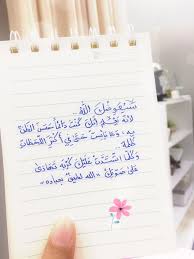 ستعوضك الله...
لأنه يعلم أنك كنت دائماً حسن الظن
به، وما يئست حتى في أكثر اللحظات
ظلمة
وكلما اشتدت عليك كربة تهادى
على صوتك «الله لطيف بعباده»